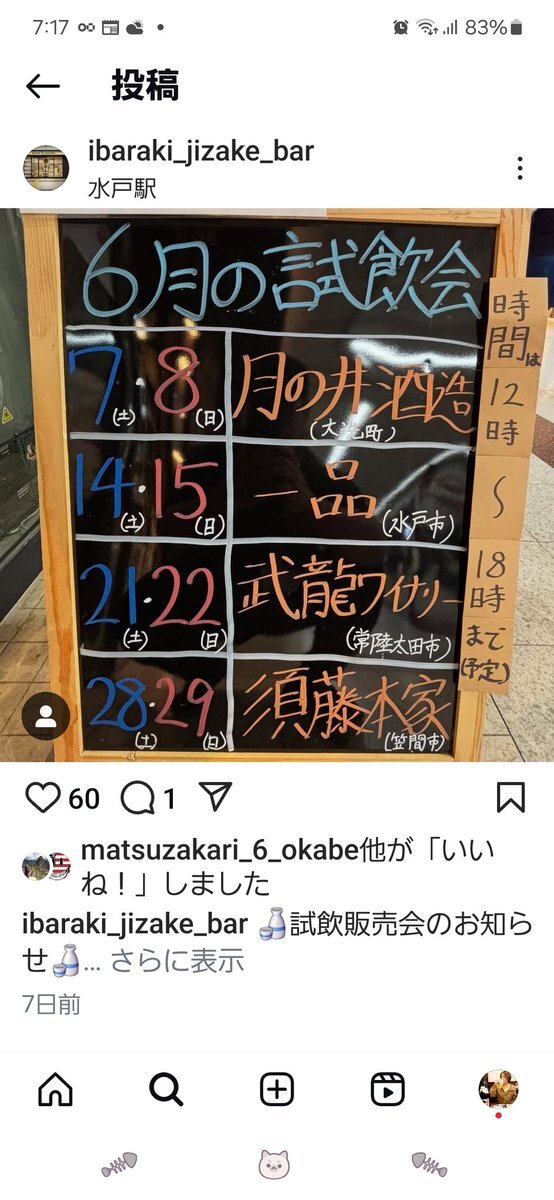 7:17
83%
投稿
ibaraki_jizake_bar
水戸駅
6月の試飲会
7(土)・8(日) 月の井酒造
(大洗町)
14(土)・15(日) 一品
(水戸市)
21(土)・22(日) 武龍ワイナリー
(常陸太田市)
28(土)・29(日) 須藤本家
(笠間市)
時間は
12時
〜
18時
まで
(予定)
60 1
matsuzakari_6_okabe他が「いい
ね！」しました
ibaraki_jizake_bar 🍶試飲販売会のお知ら
せ🍶... さらに表示
7日前